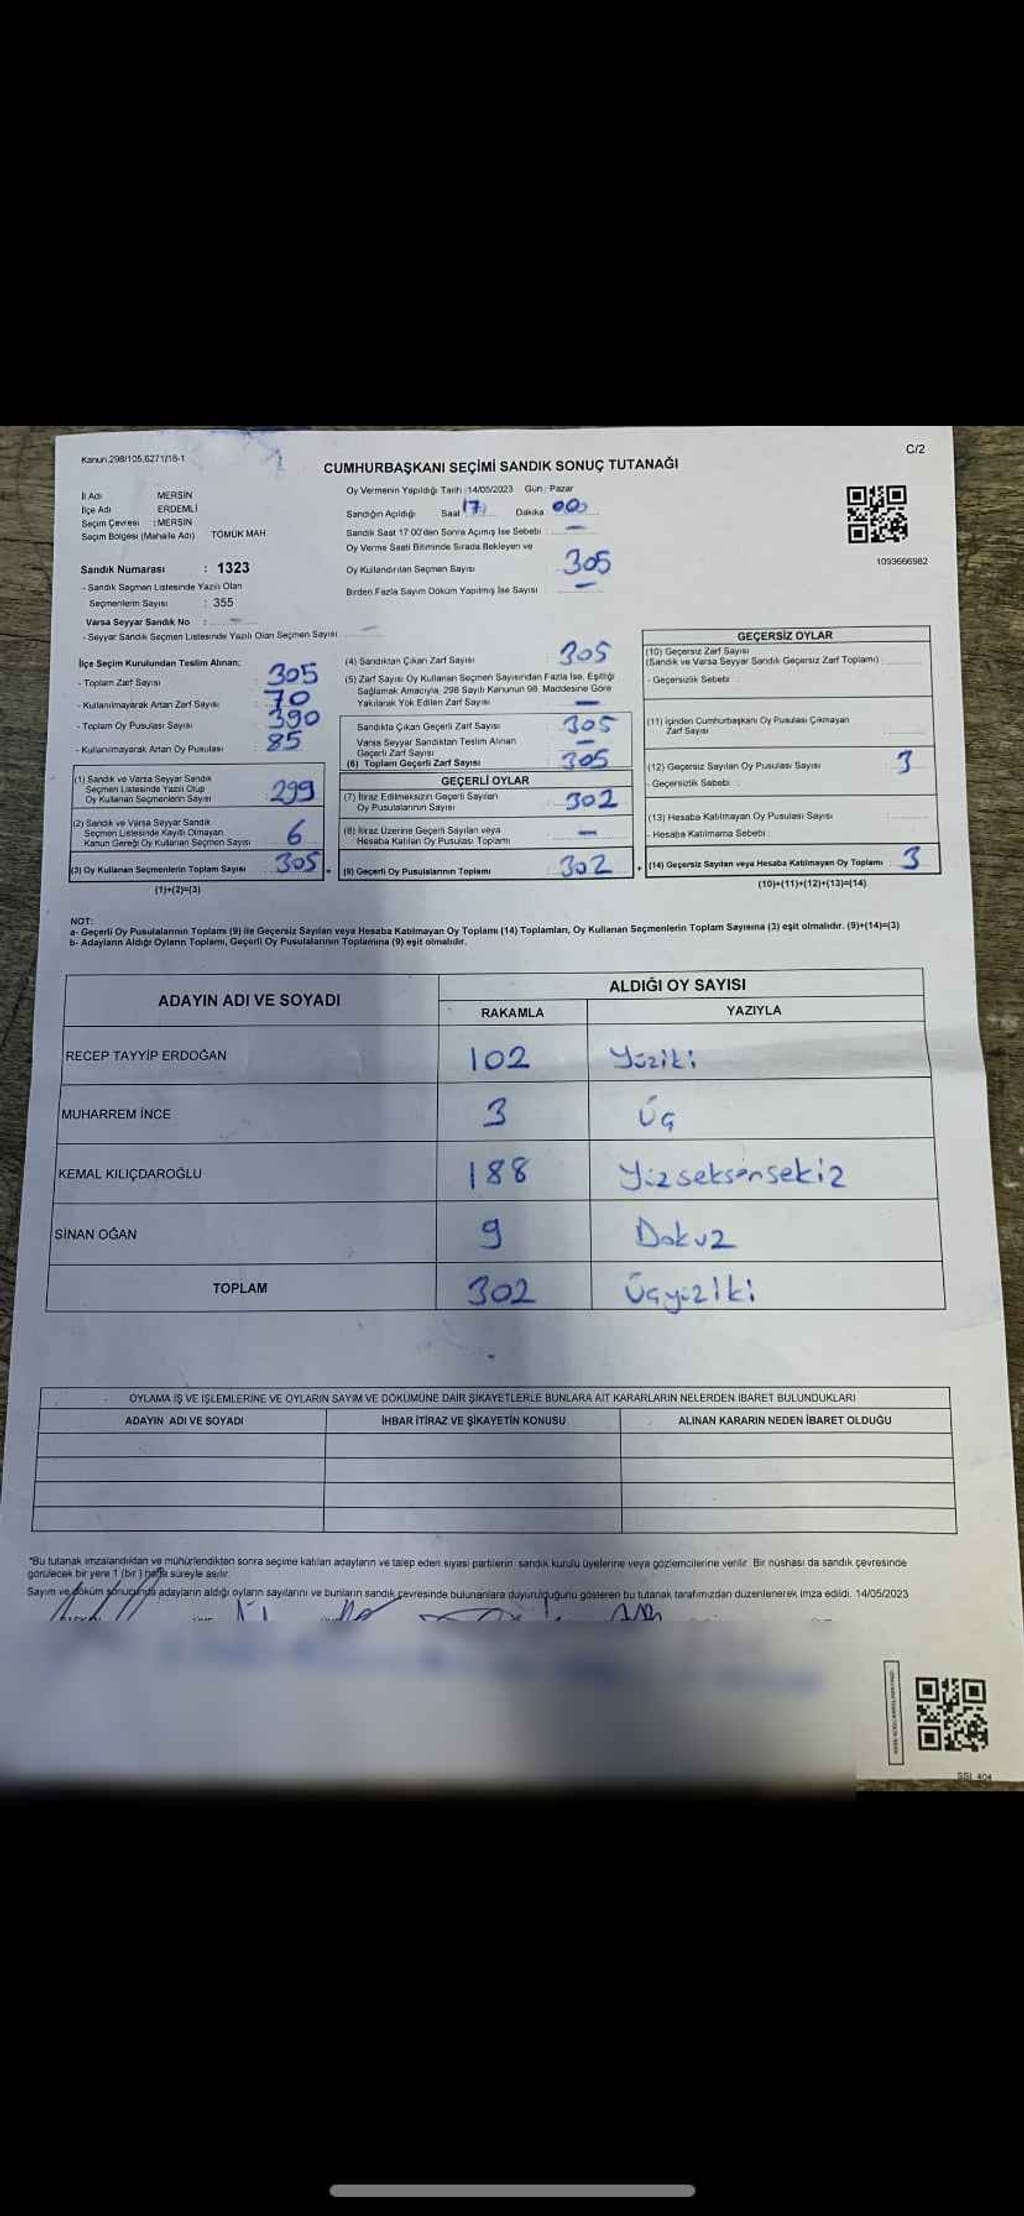 Kanun.298/105,6271/18-1
C/2
CUMHURBAŞKANI SEÇİMİ SANDIK SONUÇ TUTANAĞI
İl Adı MERSİN
İlçe Adı ERDEMLİ
Seçim Çevresi : MERSİN
Seçim Bölgesi (Mahalle Adı) TÖMÜK MAH.
Oy Vermenin Yapıldığı Tarih :14/05/2023 Gün : Pazar
Sandığın Açıldığı Saat 17 Dakika 00
Sandık Saat 17:00'den Sonra Açılmış İse Sebebi —
Oy Verme Saati Bitiminde Sırada Bekleyen ve
Oy Kullandırılan Seçmen Sayısı 305
Birden Fazla Sayım Döküm Yapılmış İse Sayısı —
1093666982
Sandık Numarası : 1323
- Sandık Seçmen Listesinde Yazılı Olan
Seçmenlerin Sayısı : 355
Varsa Seyyar Sandık No : —
- Seyyar Sandık Seçmen Listesinde Yazılı Olan Seçmen Sayısı —
İlçe Seçim Kurulundan Teslim Alınan;
- Toplam Zarf Sayısı 305
- Kullanılmayarak Artan Zarf Sayısı 70
- Toplam Oy Pusulası Sayısı 390
- Kullanılmayarak Artan Oy Pusulası : 85
(1) Sandık ve Varsa Seyyar Sandık
Seçmen Listesinde Yazılı Olup
Oy Kullanan Seçmenlerin Sayısı 299
(2) Sandık ve Varsa Seyyar Sandık
Seçmen Listesinde Kayıtlı Olmayan
Kanun Gereği Oy Kullanan Seçmen Sayısı 6
(3) Oy Kullanan Seçmenlerin Toplam Sayısı 305
(1)+(2)=(3)
(4) Sandıktan Çıkan Zarf Sayısı : 305
(5) Zarf Sayısı Oy Kullanan Seçmen Sayısından Fazla İse, Eşitliği
Sağlamak Amacıyla, 298 Sayılı Kanunun 98. Maddesine Göre
Yakılarak Yok Edilen Zarf Sayısı —
Sandıkta Çıkan Geçerli Zarf Sayısı 305
Varsa Seyyar Sandıktan Teslim Alınan
Geçerli Zarf Sayısı —
(6) Toplam Geçerli Zarf Sayısı 305
GEÇERLİ OYLAR
(7) İtiraz Edilmeksizin Geçerli Sayılan
Oy Pusulalarının Sayısı 302
(8) İtiraz Üzerine Geçerli Sayılan veya
Hesaba Katılan Oy Pusulası Toplamı —
(9) Geçerli Oy Pusulalarının Toplamı 302
GEÇERSİZ OYLAR
(10) Geçersiz Zarf Sayısı
(Sandık ve Varsa Seyyar Sandık Geçersiz Zarf Toplamı)
- Geçersizlik Sebebi :
(11) İçinden Cumhurbaşkanı Oy Pusulası Çıkmayan
Zarf Sayısı
(12) Geçersiz Sayılan Oy Pusulası Sayısı 3
- Geçersizlik Sebebi :
(13) Hesaba Katılmayan Oy Pusulası Sayısı
- Hesaba Katılmama Sebebi :
(14) Geçersiz Sayılan veya Hesaba Katılmayan Oy Toplamı 3
(10)+(11)+(12)+(13)=(14)
NOT:
a- Geçerli Oy Pusulalarının Toplamı (9) ile Geçersiz Sayılan veya Hesaba Katılmayan Oy Toplamı (14) Toplamları, Oy Kullanan Seçmenlerin Toplam Sayısına (3) eşit olmalıdır. (9)+(14)=(3)
b- Adayların Aldığı Oyların Toplamı, Geçerli Oy Pusulalarının Toplamına (9) eşit olmalıdır.
ADAYIN ADI VE SOYADI
ALDIĞI OY SAYISI
RAKAMLA YAZIYLA
RECEP TAYYİP ERDOĞAN 102 Yüziki
MUHARREM İNCE 3 Üç
KEMAL KILIÇDAROĞLU 188 Yüzseksensekiz
SİNAN OĞAN 9 Dokuz
TOPLAM 302 Üçyüziki
OYLAMA İŞ VE İŞLEMLERİNE VE OYLARIN SAYIM VE DÖKÜMÜNE DAİR ŞİKAYETLERLE BUNLARA AİT KARARLARIN NELERDEN İBARET BULUNDUKLARI
ADAYIN ADI VE SOYADI İHBAR İTİRAZ VE ŞİKAYETİN KONUSU ALINAN KARARIN NEDEN İBARET OLDUĞU
*Bu tutanak imzalandıktan ve mühürlendikten sonra seçime katılan adayların ve talep eden siyasi partilerin sandık kurulu üyelerine veya gözlemcilerine verilir. Bir nüshası da sandık çevresinde
görülecek bir yere 1 (bir) hafta süreyle asılır.
Sayım ve döküm sonucunda adayların aldığı oyların sayılarını ve bunların sandık çevresinde bulunanlara duyurulduğunu gösteren bu tutanak tarafımızdan düzenlenerek imza edildi. 14/05/2023
SSI 404